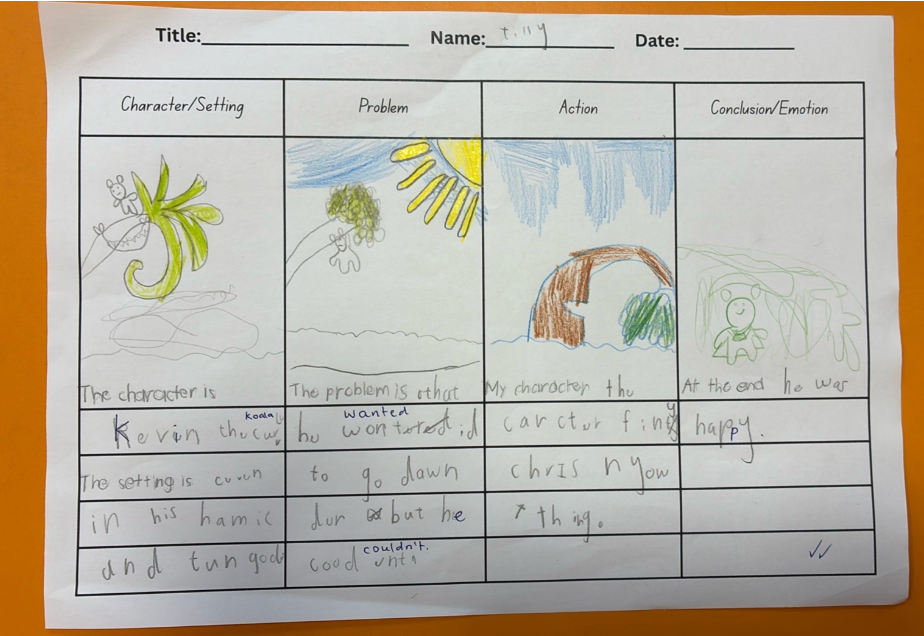 Title: Name: tilly Date:
Character/Setting
Problem
Action
Conclusion/Emotion
The character is
koala
Kevin the
The setting is
in his hamic
and
The problem is that
wanted
he wontered
to go dawn
but he
couldn't.
cood
My character the
carctur
chris n
thing.
At the end he was
happy.